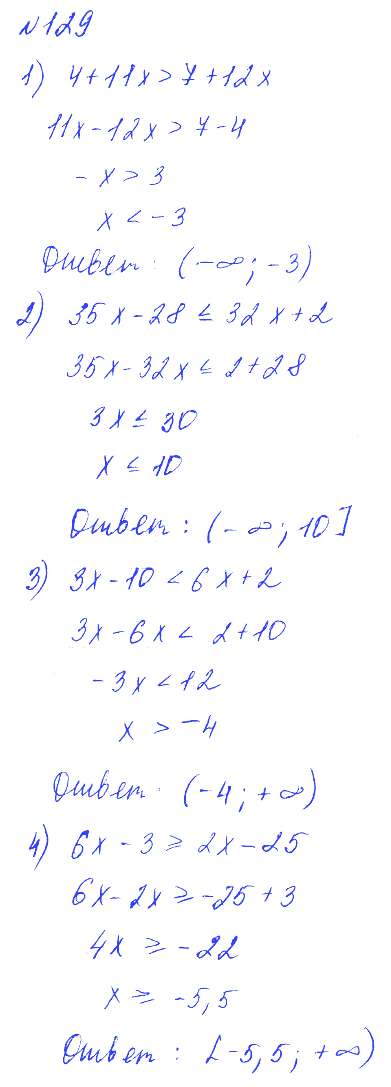 №129
1) 4+11x>7+12x
11x-12x>7-4
-x>3
x<-3
Ответ: (-∞;-3)
2) 35x-28≤32x+2
35x-32x≤2+28
3x≤30
x≤10
Ответ: (-∞;10]
3) 3x-10<6x+2
3x-6x<2+10
-3x<12
x>-4
Ответ: (-4;+∞)
4) 6x-3≥2x-25
6x-2x≥-25+3
4x≥-22
x≥-5,5
Ответ: [-5,5;+∞)